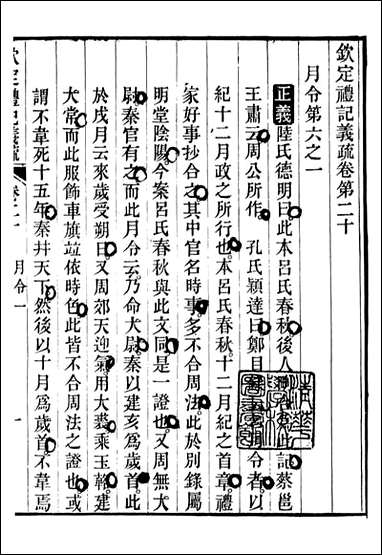 欽定禮記義疏卷第二十
月令第六之一
正義陸氏德明曰此本呂氏春秋後人
記蔡邕
王肅云周公所作　孔氏穎達曰鄭目
令者以
紀十二月政之所行也本呂氏春秋十二月紀之首章禮
家好事抄合之其中官名時事多不合周法此於別錄屬
明堂陰陽今案呂氏春秋與此文同是一證也又周無大
尉秦官有之而此月令云乃命大尉秦以建亥為歲首此
於戌月云來歲受朔日又周郊天迎氣用大裘乘玉輅建
大常而此服飾車旗竝依時色此皆不合周法之證也或
謂不韋死十五年秦并天下然後以十月為歲首不韋焉
欽定禮記義疏
卷二十
月令一
一